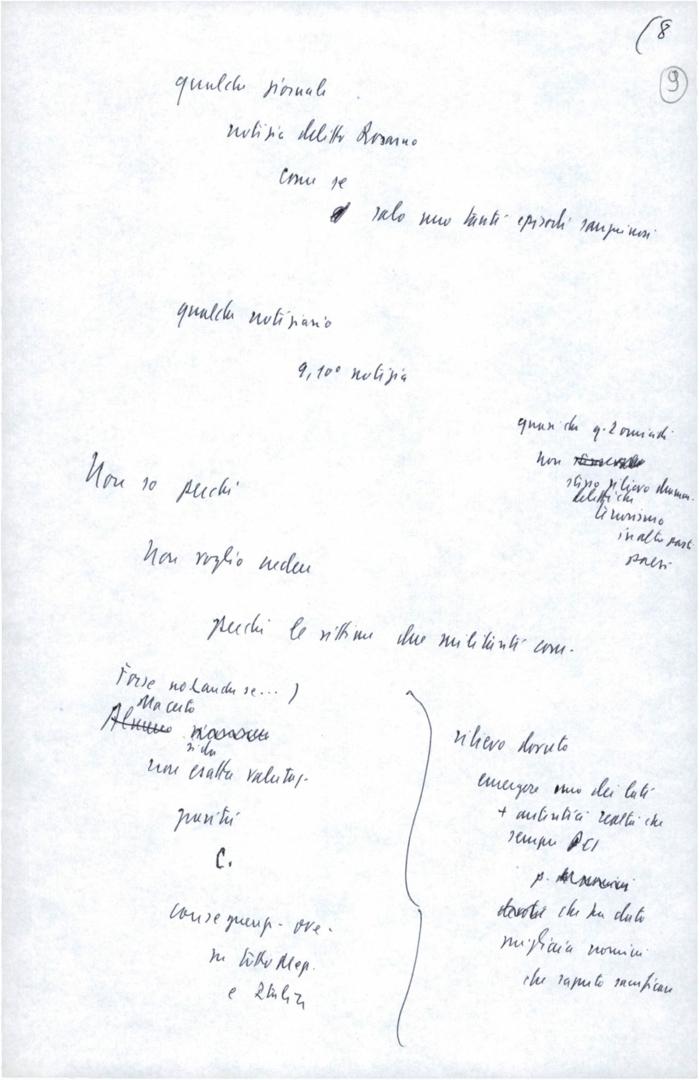 (8
9
qualche giornale
notizia delitto Rosarno
come se
solo uno tanti episodi sanguinosi
qualche notiziario
9, 10ª notizia
quasi che q. 2 omicidi
non
stesso rilievo
delitti che
terrorismo
in altre parti
paesi
Non so perché
Non voglio credere
perché le vittime due militanti com.
Forse no Lande se... )
Ma certo
si da
non esatta valutaz.
gravità
C.
conseguenz. ove.
su tutto Mezz.
e Italia
rilievo dovuto
emergere uno dei lati
+ autentici realtà che
sempre PCI
p.
che ha dato
migliaia uomini
che saputo sacrificare